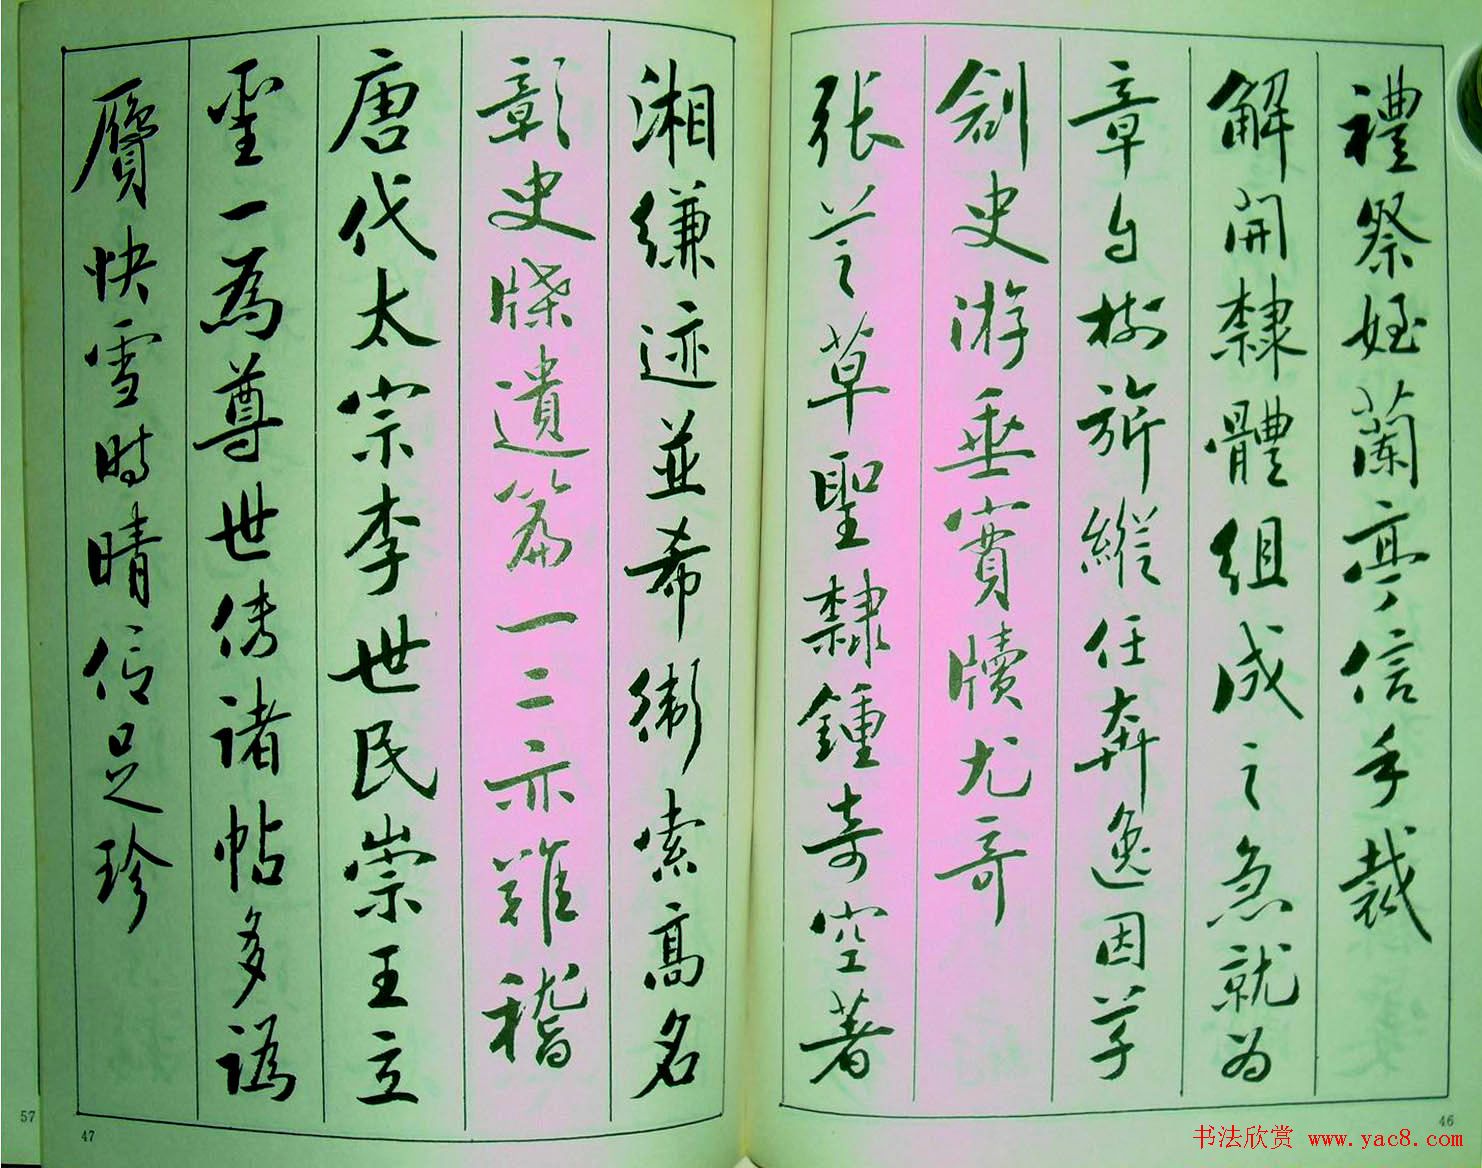 禮祭姪蘭亭信手裁
解開隸體組成之急就为
章自樹旂縱任奔逸因草
創史游垂實牘尤奇
張芝草聖隸鍾奇空著
46
湘縑迹並希衛索高名
彰史牒遺篇一二亦難稽
唐代太宗李世民崇王立
聖一為尊世傳諸帖多譌
贋快雪時晴信足珍
47
57
书法欣赏 www.yac8.com